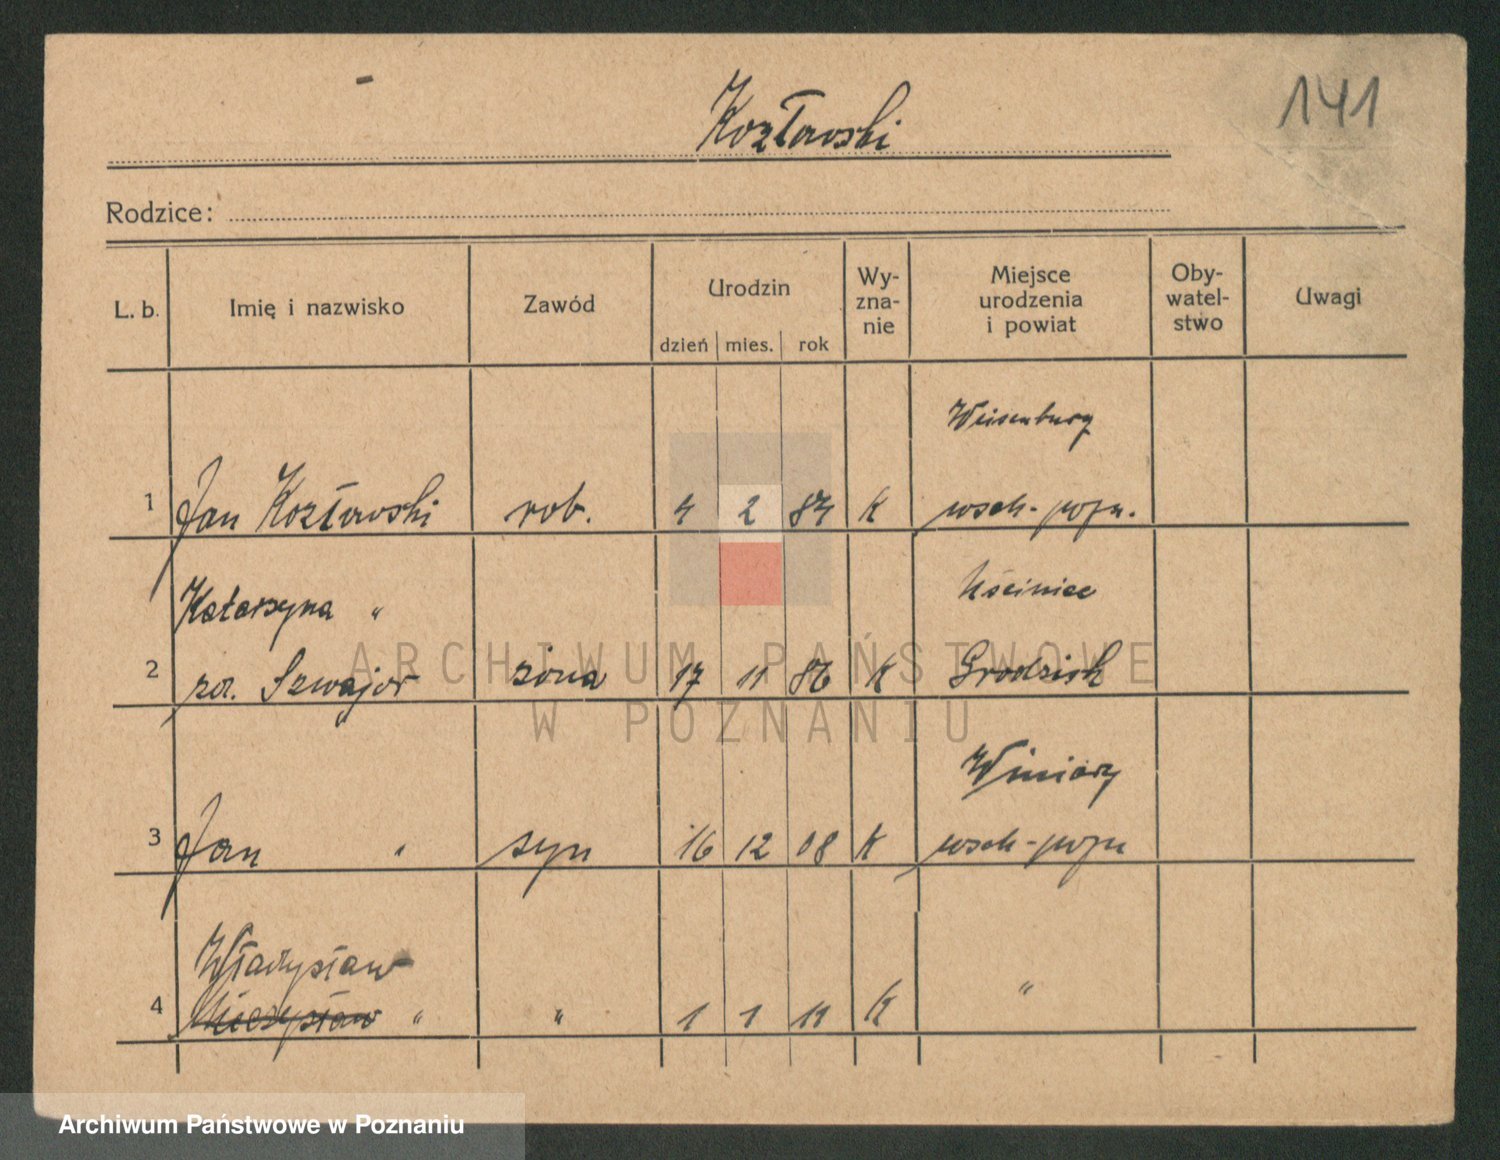 141
Kozłowski
Rodzice:
L. b. Imię i nazwisko Zawód Urodzin Wy- zna- nie Miejsce urodzenia i powiat Oby- watel- stwo Uwagi
dzień mies. rok
Weisenburg
1 Jan Kozłowski rob. 4 2 84 K wsch-
Katarzyna "
2 Szwajor żona 17 11 86 K Grodzisk
Winiary
3 Jan " syn 16 12 08 K wsch-
Władysław
4 Mieczysław " " 1 1 11 K "
ARCHIWUM PAŃSTWOWE
W POZNANIU
Archiwum Państwowe w Poznaniu